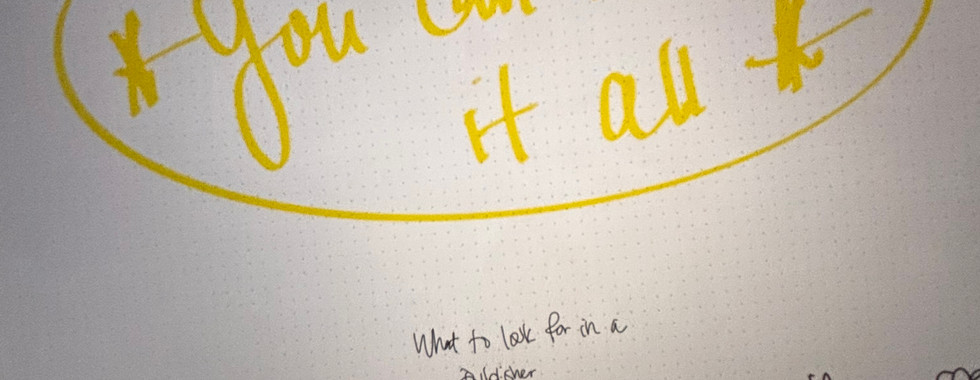 *You can
it all *
What to look for in a
Publisher